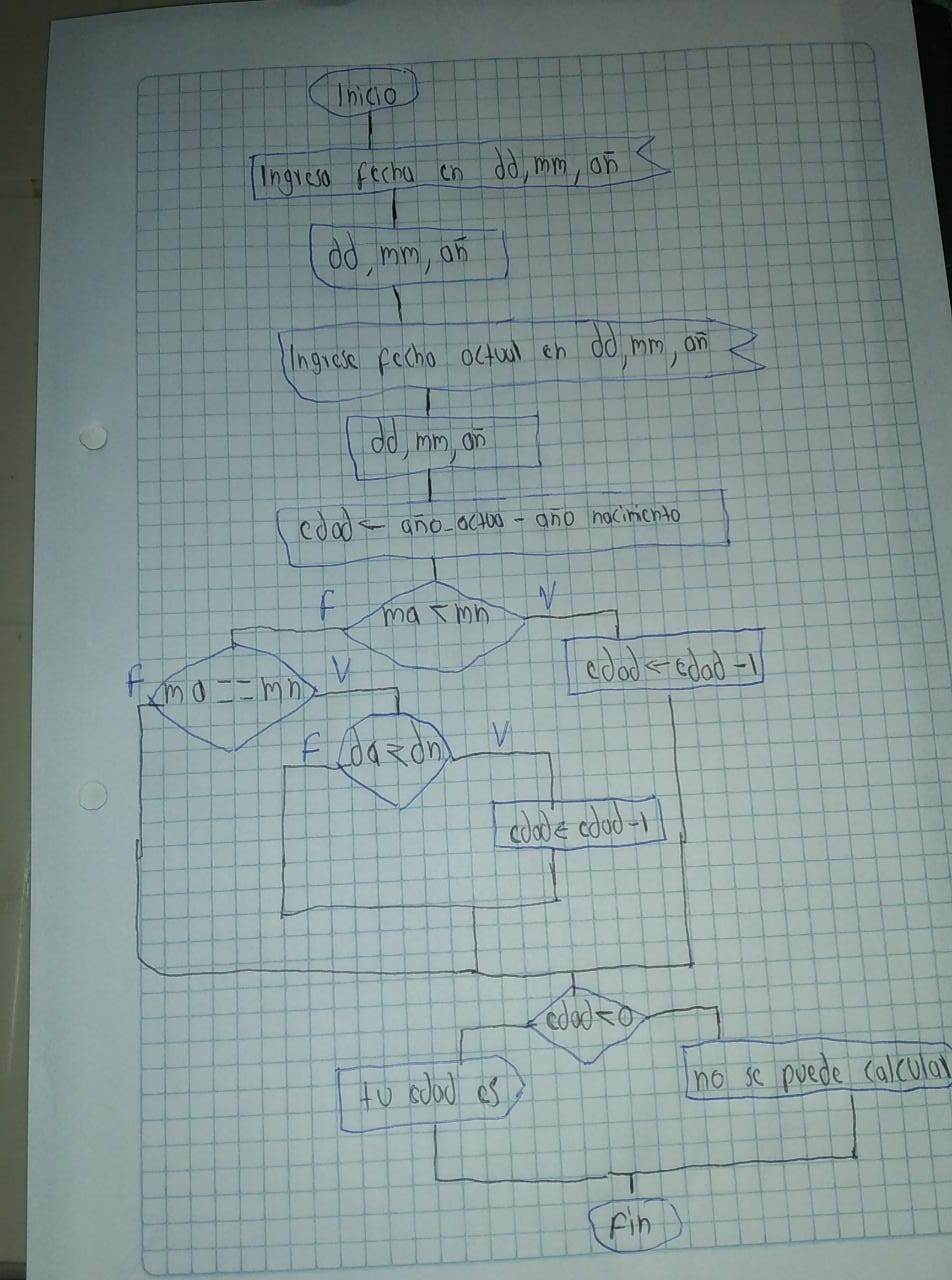 Inicio
Ingresa fecha en dd, mm, añ
dd, mm, añ
Ingrese fecha actual en dd, mm, añ
dd, mm, añ
edad ← año-actua - año nacimiento
F ma < mn V
edad ← edad -1
F ma == mn V
F da < dn V
edad ← edad -1
edad < 0
tu edad es
no se puede calcular
Fin